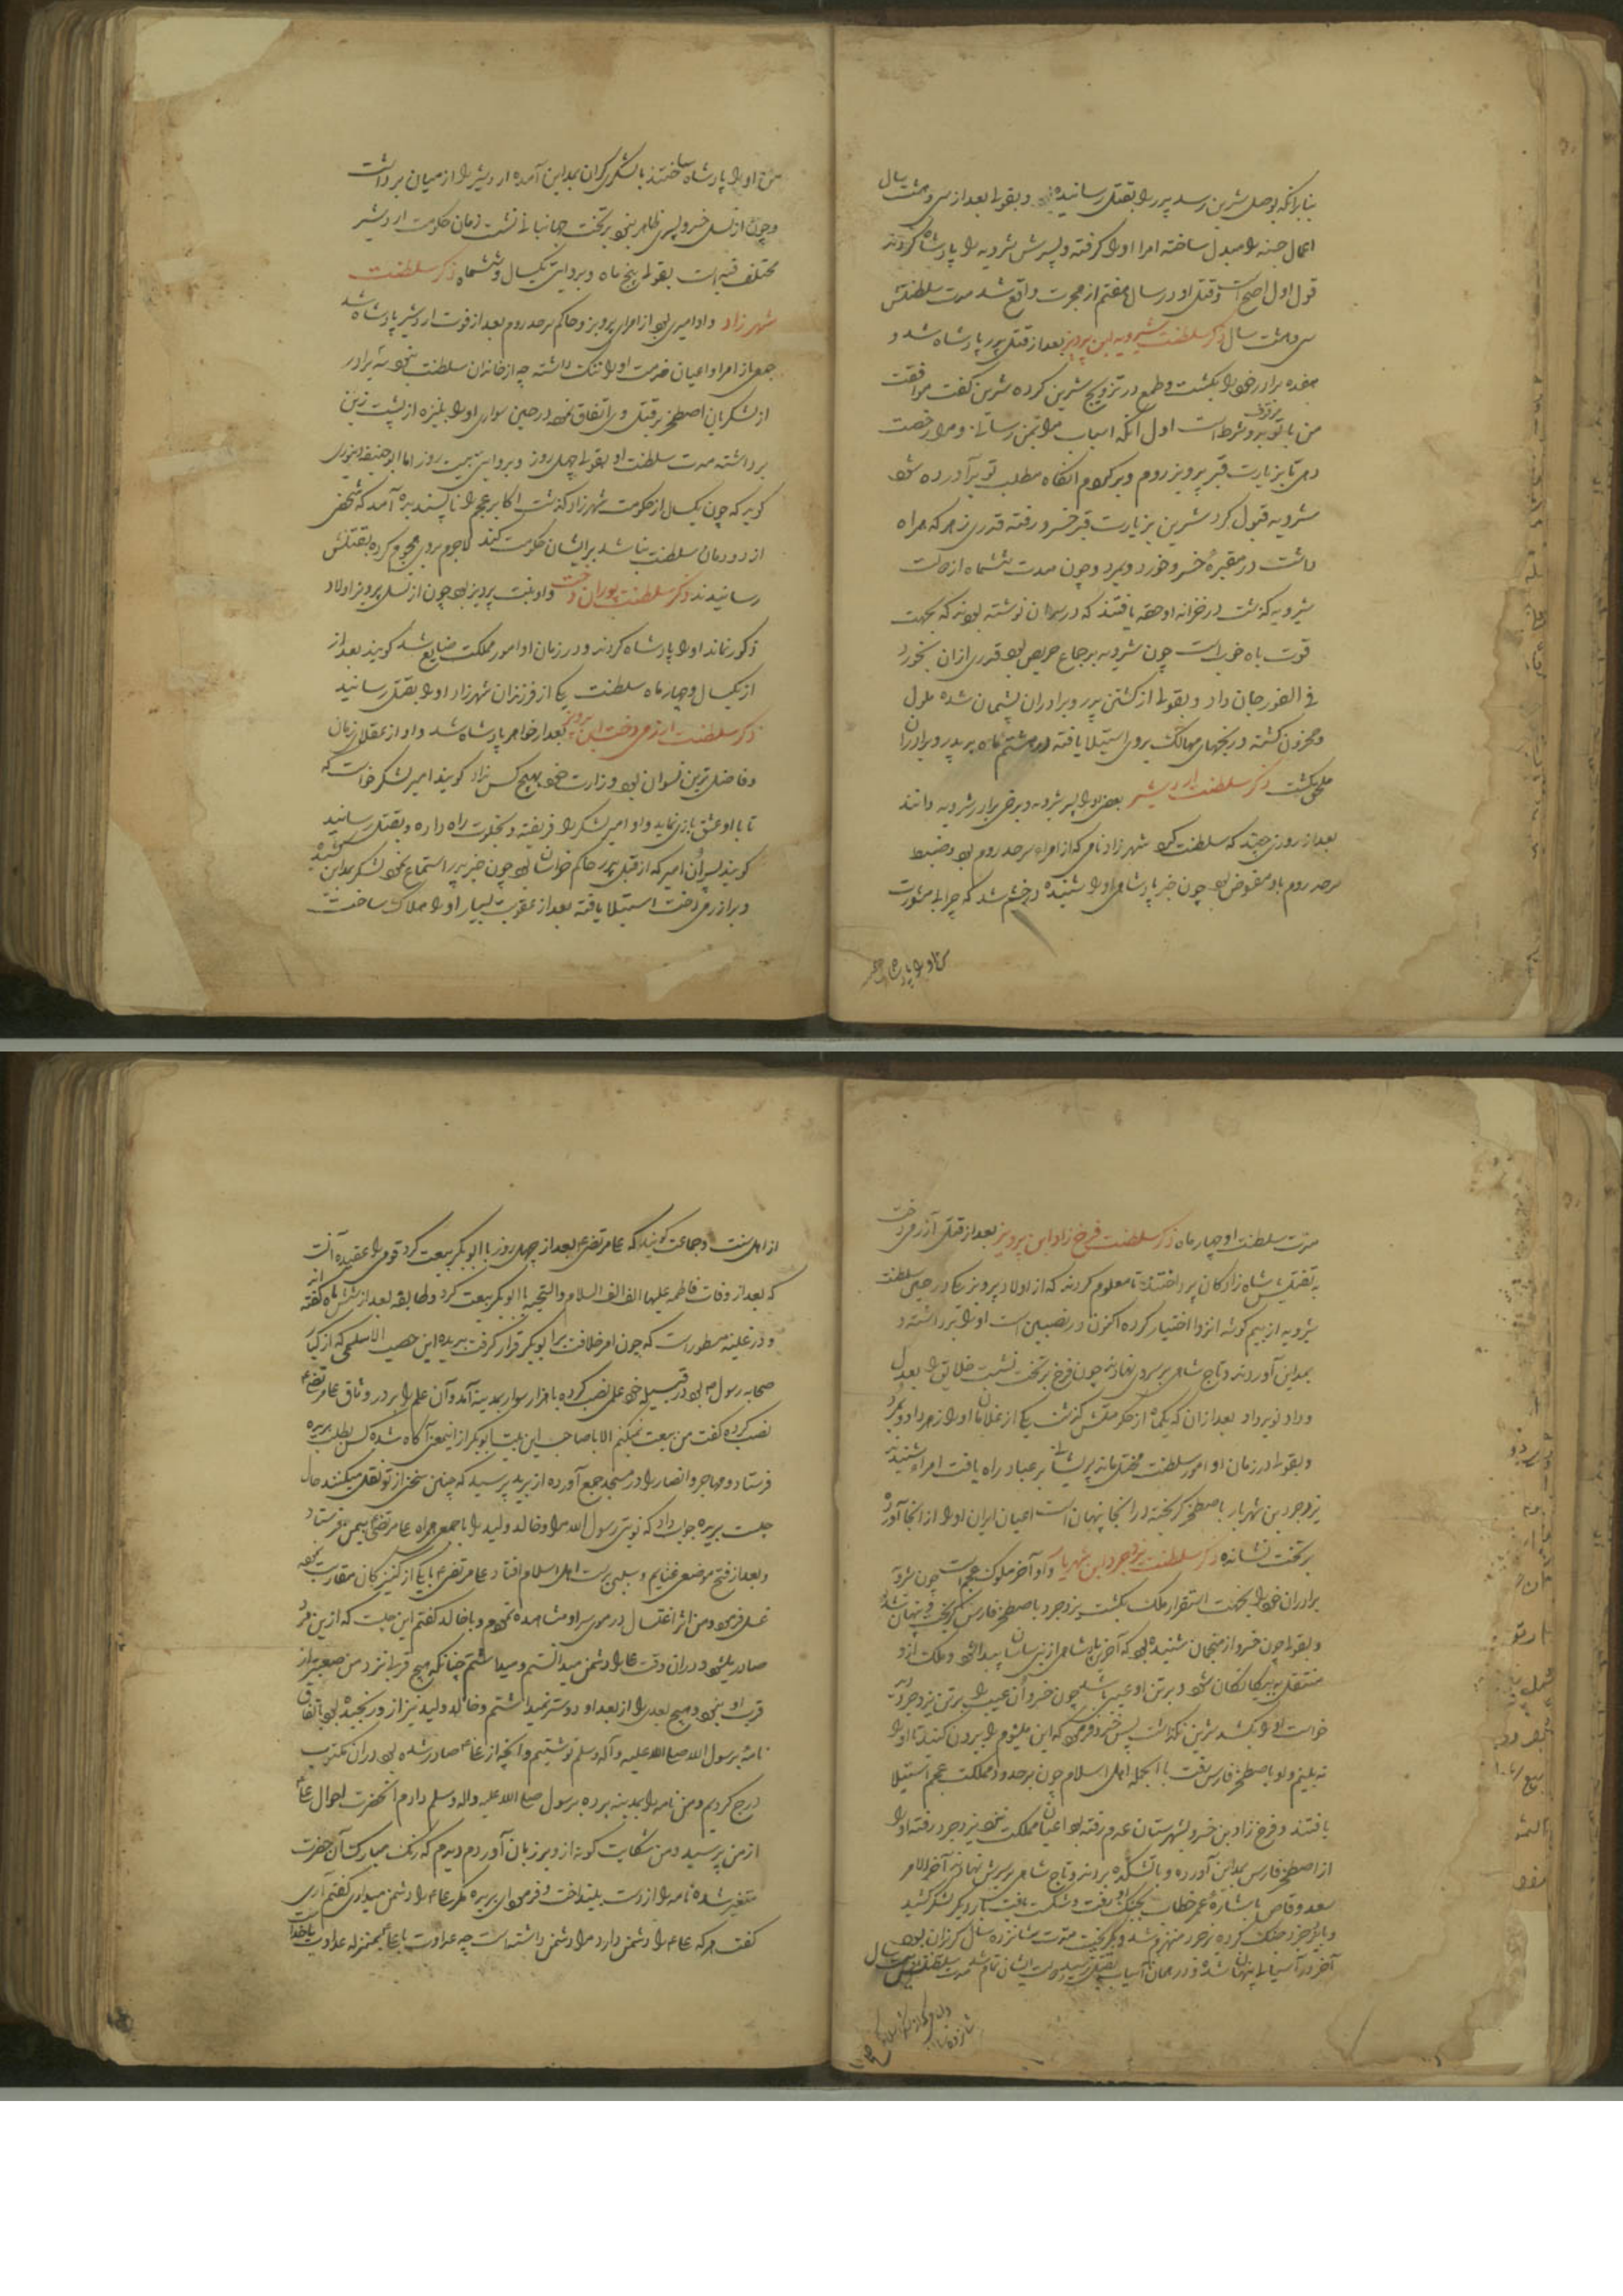 بنابرآنکه بوصل شیرین رسد پدر را بقتل رسانیده و بقولی بعد از سی و هشت سال
اعمال حسنه را مبدل ساخته امرا او را گرفته و پسرش شرویه را پادشاه کردند
قول اول اصح است و قتل او در سال هفتم از هجرت واقع شد مدت سلطنتش
سی و هشت سال ذکر سلطنت شیرویه ابن پرویز بعد از قتل پدر پادشاه شد و
هفده برادر خود را بکشت و طمع در تزویج شیرین کرده شیرین گفت موافقت
من با تو بر دو شرط است اول آنکه اسباب مرا بمن رسانی و مرا رخصت
دهی تا بزیارت قبر پرویز روم و بر گردم آنگاه مطلب تو برآورده شود
شرویه قبول کرد شیرین بزیارت قبر خسرو رفته قدری زهر که همراه
داشت در مقبرهٔ خسرو خورد و بمرد و چون مدت ششماه از حکومت
شیرویه گذشت در خزانه او حقه یافتند که در سر آن نوشته بودند که بجهت
قوت باه خوب است چون شرویه بر جماع حریص بود قدری ازان بخورد
فی الفور جان داد و بقولی از کشتن پدر و برادران پشیمان شده ملول
و محزون گشته و رنجهای مهالک بروی استیلا یافته در هشتم ماه بپدر و برادران
ملحق گشت ذکر سلطنت اردشیر بعضی او را پسر شرویه و برخی برادر شرویه دانند
بعد از روزی چند که سلطنت کرد شهرزاد نامی که از امراء سرحد روم بود و ضبط
سرحد روم باو مفوض بود چون خبر پادشاهی او را شنیده در خشم شد که چرا بی مشورت
من او را پادشاه ساختند با لشکر گران بمداین آمده اردشیر را از میان برداشت
و چون از نسل خسرو پسری ظاهر نبود بر تخت جهانبانی نشست زمان حکومت اردشیر
مختلف فیه است بقولی پنج ماه و بروایتی یکسال و ششماه ذکر سلطنت
شهرزاد و او امیری بود از امرای پرویز و حاکم سرحد روم بعد از فوت اردشیر پادشاه شد
جمعی از امرا و اعیان خدمت او را ننگ داشته چه از خاندان سلطنت نبود سه برادر
از لشکریان اصطخر بر قتل وی اتفاق نموده در حین سواری او را بنیزه از پشت زین
برداشته مدت سلطنت او بقولی چهل روز و بروایتی بیست روز اما ابو حنیفه دینوری
گوید که چون یکسال از حکومت شهرزاد گذشت اکابر عجم را ناپسندیده آمد که شخصی
از دودمان سلطنت نباشد بر ایشان حکومت کند لاجرم بروی هجوم کرده بقتلش
رسانیدند ذکر سلطنت پوران دخت و او بنت پرویز بود چون از نسل پرویز اولاد
ذکور نماند او را پادشاه کردند و در زمان او امور مملکت ضایع شد گویند بعد از
از یکسال و چهار ماه سلطنت یکی از فرزندان شهرزاد او را بقتل رسانید
ذکر سلطنت آزرمی دخت ابن پرویز بعد از خواهر پادشاه شد و او از عقلای زمان
و فاضل ترین نسوان بود وزارت خود بهیچ کس نداد گویند امیر لشکر خواست که
تا با او عشق بازی نماید و او امیر لشکر را فریفته و بخلوت راه داده و بقتل رسانید
گویند پسر آن امیر که از قبل پدر حاکم خراسان بود چون خبر پدر استماع نمود لشکر بمداین کشیده
و بر آزرمی دخت استیلا یافته بعد از عقوبت بسیار او را هلاک ساخت
مدت سلطنت او چهار ماه ذکر سلطنت فرخ زاد ابن پرویز بعد از قتل آزرمی دخت
به تفتیش شاه زادگان پرداختند تا معلوم کردند که از اولاد پرویز یکی در حین سلطنت
شیرویه از بیم گوشه انزوا اختیار کرده اکنون در نصیبین است او را برداشته و
بمداین آوردند و تاج شاهی بر سر وی نهادند چون فرخ بر تخت نشست خلایق را بعدل
و داد نوید داد بعد از ان که یکماه از حکومتش گذشت یکی از غلامان او را زهر داد و بمرد
و بقولی در زمان او امور سلطنت مختل مانده پریشانی بر عباد راه یافت امرا شنیدند
یزدجرد بن شهریار باصطخر گریخته در آنجا پنهان است اعیان ایران او را از آنجا آورده
بر تخت نشاندند ذکر سلطنت یزدجرد ابن شهریار و او آخر ملوک عجم است چون شرویه
برادران خود را بجهت استقرار ملک بکشت یزدجرد باصطخر فارس گریخت و پنهان شد
و بقولی چون خسرو از منجمان شنیده بود که آخرین پادشاهی از بنی ساسان پیدا شود و ملک ازو
منتقل به بیگانگان شود و بر تن او عیبی باشد چون خسرو آن عیب را بر تن یزدجرد دید
خواست او را بکشد شیرین نگذاشت پس خسرو فرمود که این میشوم را بیرون کنید تا او را
نه بینم و او باصطخر فارس رفت با الجمله اهل اسلام چون بر حدود مملکت عجم استیلا
یافتند و فرخ زاد بن خسرو بشهرستان عدم رفته بود اعیان مملکت نزد یزدجرد رفته او را
از اصطخر فارس بمداین آورده و باتشکده بردند و تاج شاهی بر سرش نهادند آخر الامر
سعد وقاص باشارهٔ عمر خطاب بجنگ او رفت و شکست یافت بار دیگر لشکر کشید
و با یزدجرد جنگ کرده یزدجرد منهزم شد و بگریخت مدت شانزده سال گریزان بود
آخر در آسیائی پنهان شده و در همان آسیاب بقتل رسید دولت ایشان تمام شد مدت سلطنتش بیست سال
از اهل سنت و جماعت گویند که علی مرتضی بعد از چهل روز با ابوبکر بیعت کرد قومی را عقیده آنست
که بعد از وفات فاطمه علیها الف الف السلام والتحیه با ابوبکر بیعت کرد و طایفه بعد از شش ماه گفته اند
و در غلیه مسطور است که چون امر خلافت بر ابوبکر قرار گرفت بریده ابن حصیب الاسلمی که از کبار
صحابه رسول بود در قبیله خود علمی نصب کرده با هزار سوار بمدینه آمد و آن علم را بر در وثاق علی مرتضی
نصب کرده گفت من بیعت نمیکنم الا با صاحب این بیت ابوبکر ازینمعنی آگاه شده کس بطلب بریده
فرستاد و مهاجر و انصار را در مسجد جمع آورده از بریده پرسید که چنین سخنی از تو نقل میکنند حال
چیست بریده جواب داد که نوبتی رسول الله مرا و خالد ولید را با جمعی همراه علی مرتضی بیمن فرستاد
و بعد از فتح موضعی غنایم و سبی بدست اهل اسلام افتاد علی مرتضی با یکی از کنیزکان مقاربت نموده
غسل فرمود و من اثر اغتسال در موی سر او مشاهده نمودم و با خالد گفتم این چیست که ازین مرد
صادر میشود و در ان وقت علی را دشمن میدانستم و میداشتم چنانکه هیچ قربی نزد من صعبتر از
قرب او نبود و هیچ بعدی را از بعد او دوستر نمیداشتم و خالد ولید نیز ازو رنجیده بود باتفاق
نامهٔ برسول الله صلی الله علیه و آله وسلم نوشتیم و آنچه از علی صادر شده بود در ان مکتوب
درج کردیم و من نامه را بمدینه برده برسول صلی الله علیه واله وسلم دادم آنحضرت احوال علی
از من پرسید و من شکایت گونه ازو بر زبان آوردم و دیدم که رنگ مبارک آن حضرت
متغیر شده نامه را از دست بینداخت و فرمود ای بریده مگر علی را دشمن میداری گفتم آری
گفت هر که علی را دشمن دارد مرا دشمن داشته است چه عداوت با علی بمنزله عداوت با خدا